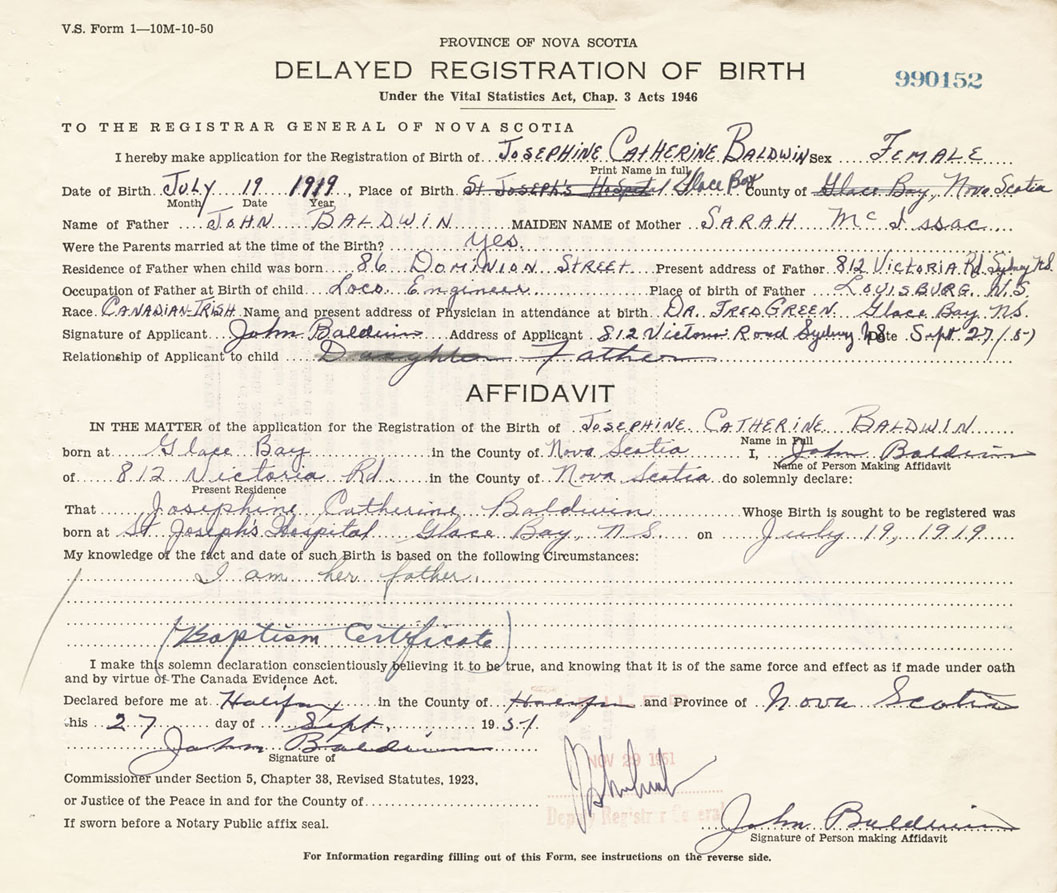 V.S. Form 1—10M-10-50
PROVINCE OF NOVA SCOTIA
DELAYED REGISTRATION OF BIRTH
990152
Under the Vital Statistics Act, Chap. 3 Acts 1946
TO THE REGISTRAR GENERAL OF NOVA SCOTIA
I hereby make application for the Registration of Birth of JOSEPHINE CATHERINE BALDWIN Sex FEMALE
Print Name in full
Date of Birth JULY 19 1919, Place of Birth St Joseph's Hospital Glace Bay County of Glace Bay, Nova Scotia
Month Date Year
Name of Father JOHN BALDWIN MAIDEN NAME of Mother SARAH Mc Issac
Were the Parents married at the time of the Birth? yes
Residence of Father when child was born 86 DOMINION STREET Present address of Father 812 VICTORIA Rd Sydney N.S.
Occupation of Father at Birth of child Loco Engineer Place of birth of Father LOUISBURG, N.S.
Race CANADIAN-IRISH Name and present address of Physician in attendance at birth DR. FRED GREEN Glace Bay N.S.
Signature of Applicant John Baldwin Address of Applicant 812 Victoria Road Sydney NS Date Sept 27/51
Relationship of Applicant to child Daughter Father
AFFIDAVIT
IN THE MATTER of the application for the Registration of the Birth of JOSEPHINE CATHERINE BALDWIN
Name in Full
born at Glace Bay in the County of Nova Scotia I, John Baldwin
Name of Person Making Affidavit
of 812 Victoria Rd. in the County of Nova Scotia do solemnly declare:
Present Residence
That Josephine Catherine Baldwin Whose Birth is sought to be registered was
born at St Joseph's Hospital Glace Bay, N.S. on July 19, 1919
My knowledge of the fact and date of such Birth is based on the following Circumstances:
I am her father.
(Baptism Certificate)
I make this solemn declaration conscientiously believing it to be true, and knowing that it is of the same force and effect as if made under oath
and by virtue of The Canada Evidence Act.
Declared before me at Halifax in the County of Halifax and Province of Nova Scotia
his 27 day of Sept. 1951
John Baldwin
Signature of
NOV 29 1951
Commissioner under Section 5, Chapter 38, Revised Statutes, 1923,
or Justice of the Peace in and for the County of
Deputy Registrar General
John Baldwin
If sworn before a Notary Public affix seal.
Signature of Person making Affidavit
For Information regarding filling out of this Form, see instructions on the reverse side.